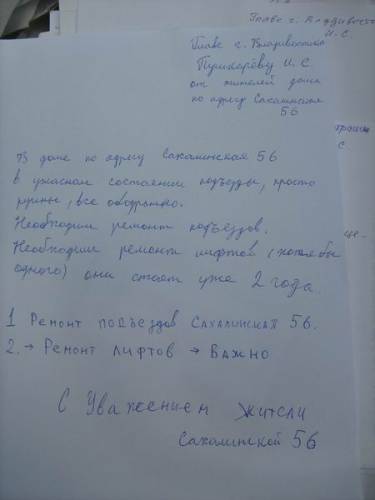 Главе г. Владивостока
И.С.
Главе г. Владивостока
Пушкарёву И.С.
от жителей дома
по адресу Сахалинская
56
В доме по адресу Сахалинская 56
в ужасном состоянии подъезды, просто
руины, все ободранно.
Необходим ремонт подъездов.
Необходим ремонт лифтов (хотя бы
одного) они стоят уже 2 года.
1 Ремонт подъездов Сахалинская 56.
2. → Ремонт лифтов → Важно
С Уважением жители
Сахалинской 56